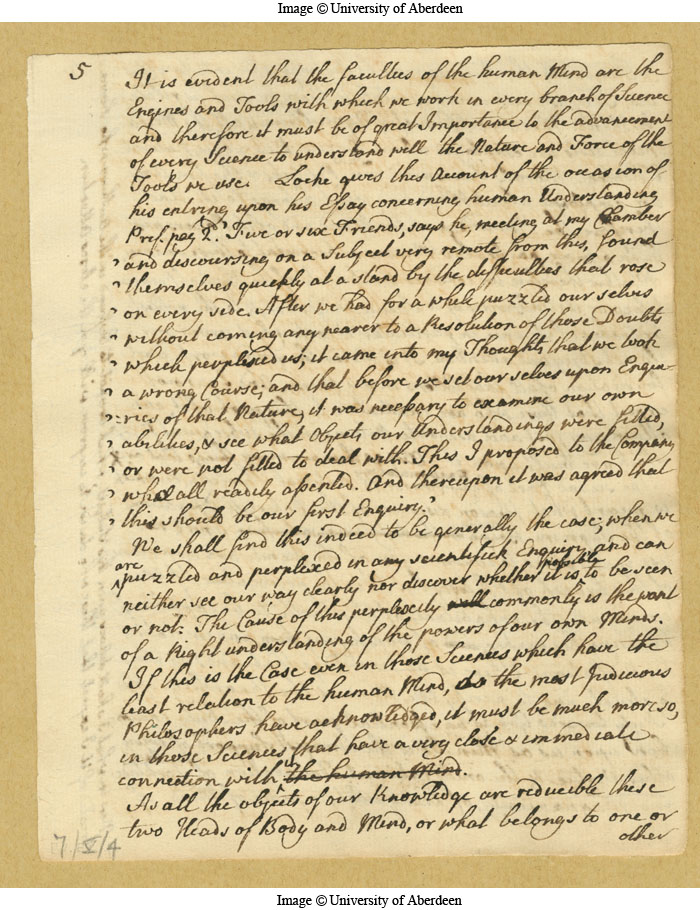 Image © University of Aberdeen
5
It is evident that the faculties of the human Mind are the
Engines and Tools with which we work in every branch of Science
and therefore it must be of great Importance to the advancement
of every Science to understand well the Nature and Force of the
Tools we use. Locke gives this Account of the occasion of
his entring upon his Essay concerning human Understanding
Pref. pag 2. Five or six Friends, says he, meeting at my Chamber
" and discoursing on a Subject very remote from this, found
" themselves quickly at a stand by the difficulties that rose
" on every side. After we had for a while puzzled our selves
" without coming any nearer to a Resolution of those Doubts
" which perplexed us; it came into my Thoughts that we took
" a wrong Course; and that before we set our selves upon Enqui-
" ries of that Nature, it was necessary to examine our own
" abilities, & see what Objects our Understandings were fitted,
" or were not fitted to deal with. This I proposed to the Company
" who all readily assented. And thereupon it was agreed that
" this should be our first Enquiry."
We shall find this indeed to be generally the case, when we
are
puzzled and perplexed in any scientifick Enquiry and can
possible
neither see our way clearly nor discover whether it is to be seen
or not. The Cause of this perplexity will commonly is the want
of a Right understanding of the powers of our own Minds.
If this is the Case even in those Sciences which have the
least relation to the human Mind, as the most Judicious
Philosophers have acknowledged, it must be much more so,
in those Sciences that have a very close & immediate
connection with the human Mind.
As all the objects of our Knowledge are reducible these
two Heads of Body and Mind, or what belongs to one or
other
7/V/4
Image © University of Aberdeen